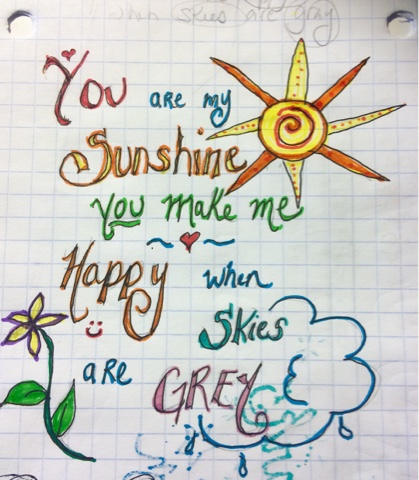 when skies are gray
You are my
Sunshine
you make me
Happy when
Skies
are GREY